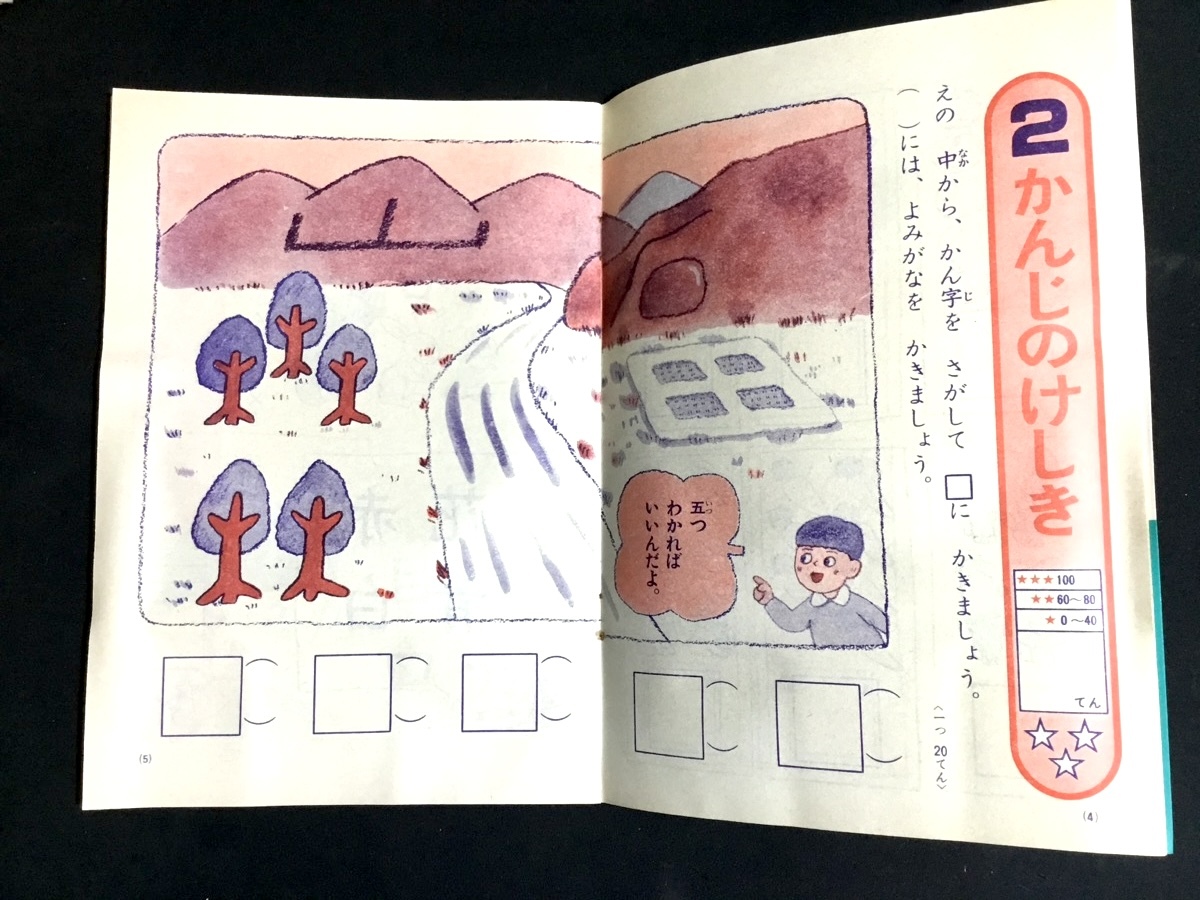 2 かんじのけしき
★★★100
★★60〜80
★0〜40
てん
えの 中から、かん字を さがして □に かきましょう。
なか
じ
( )には、よみがなを かきましょう。
〈一つ 20てん〉
五つ
いつ
わかれば
いいんだよ。
(4)
(5)